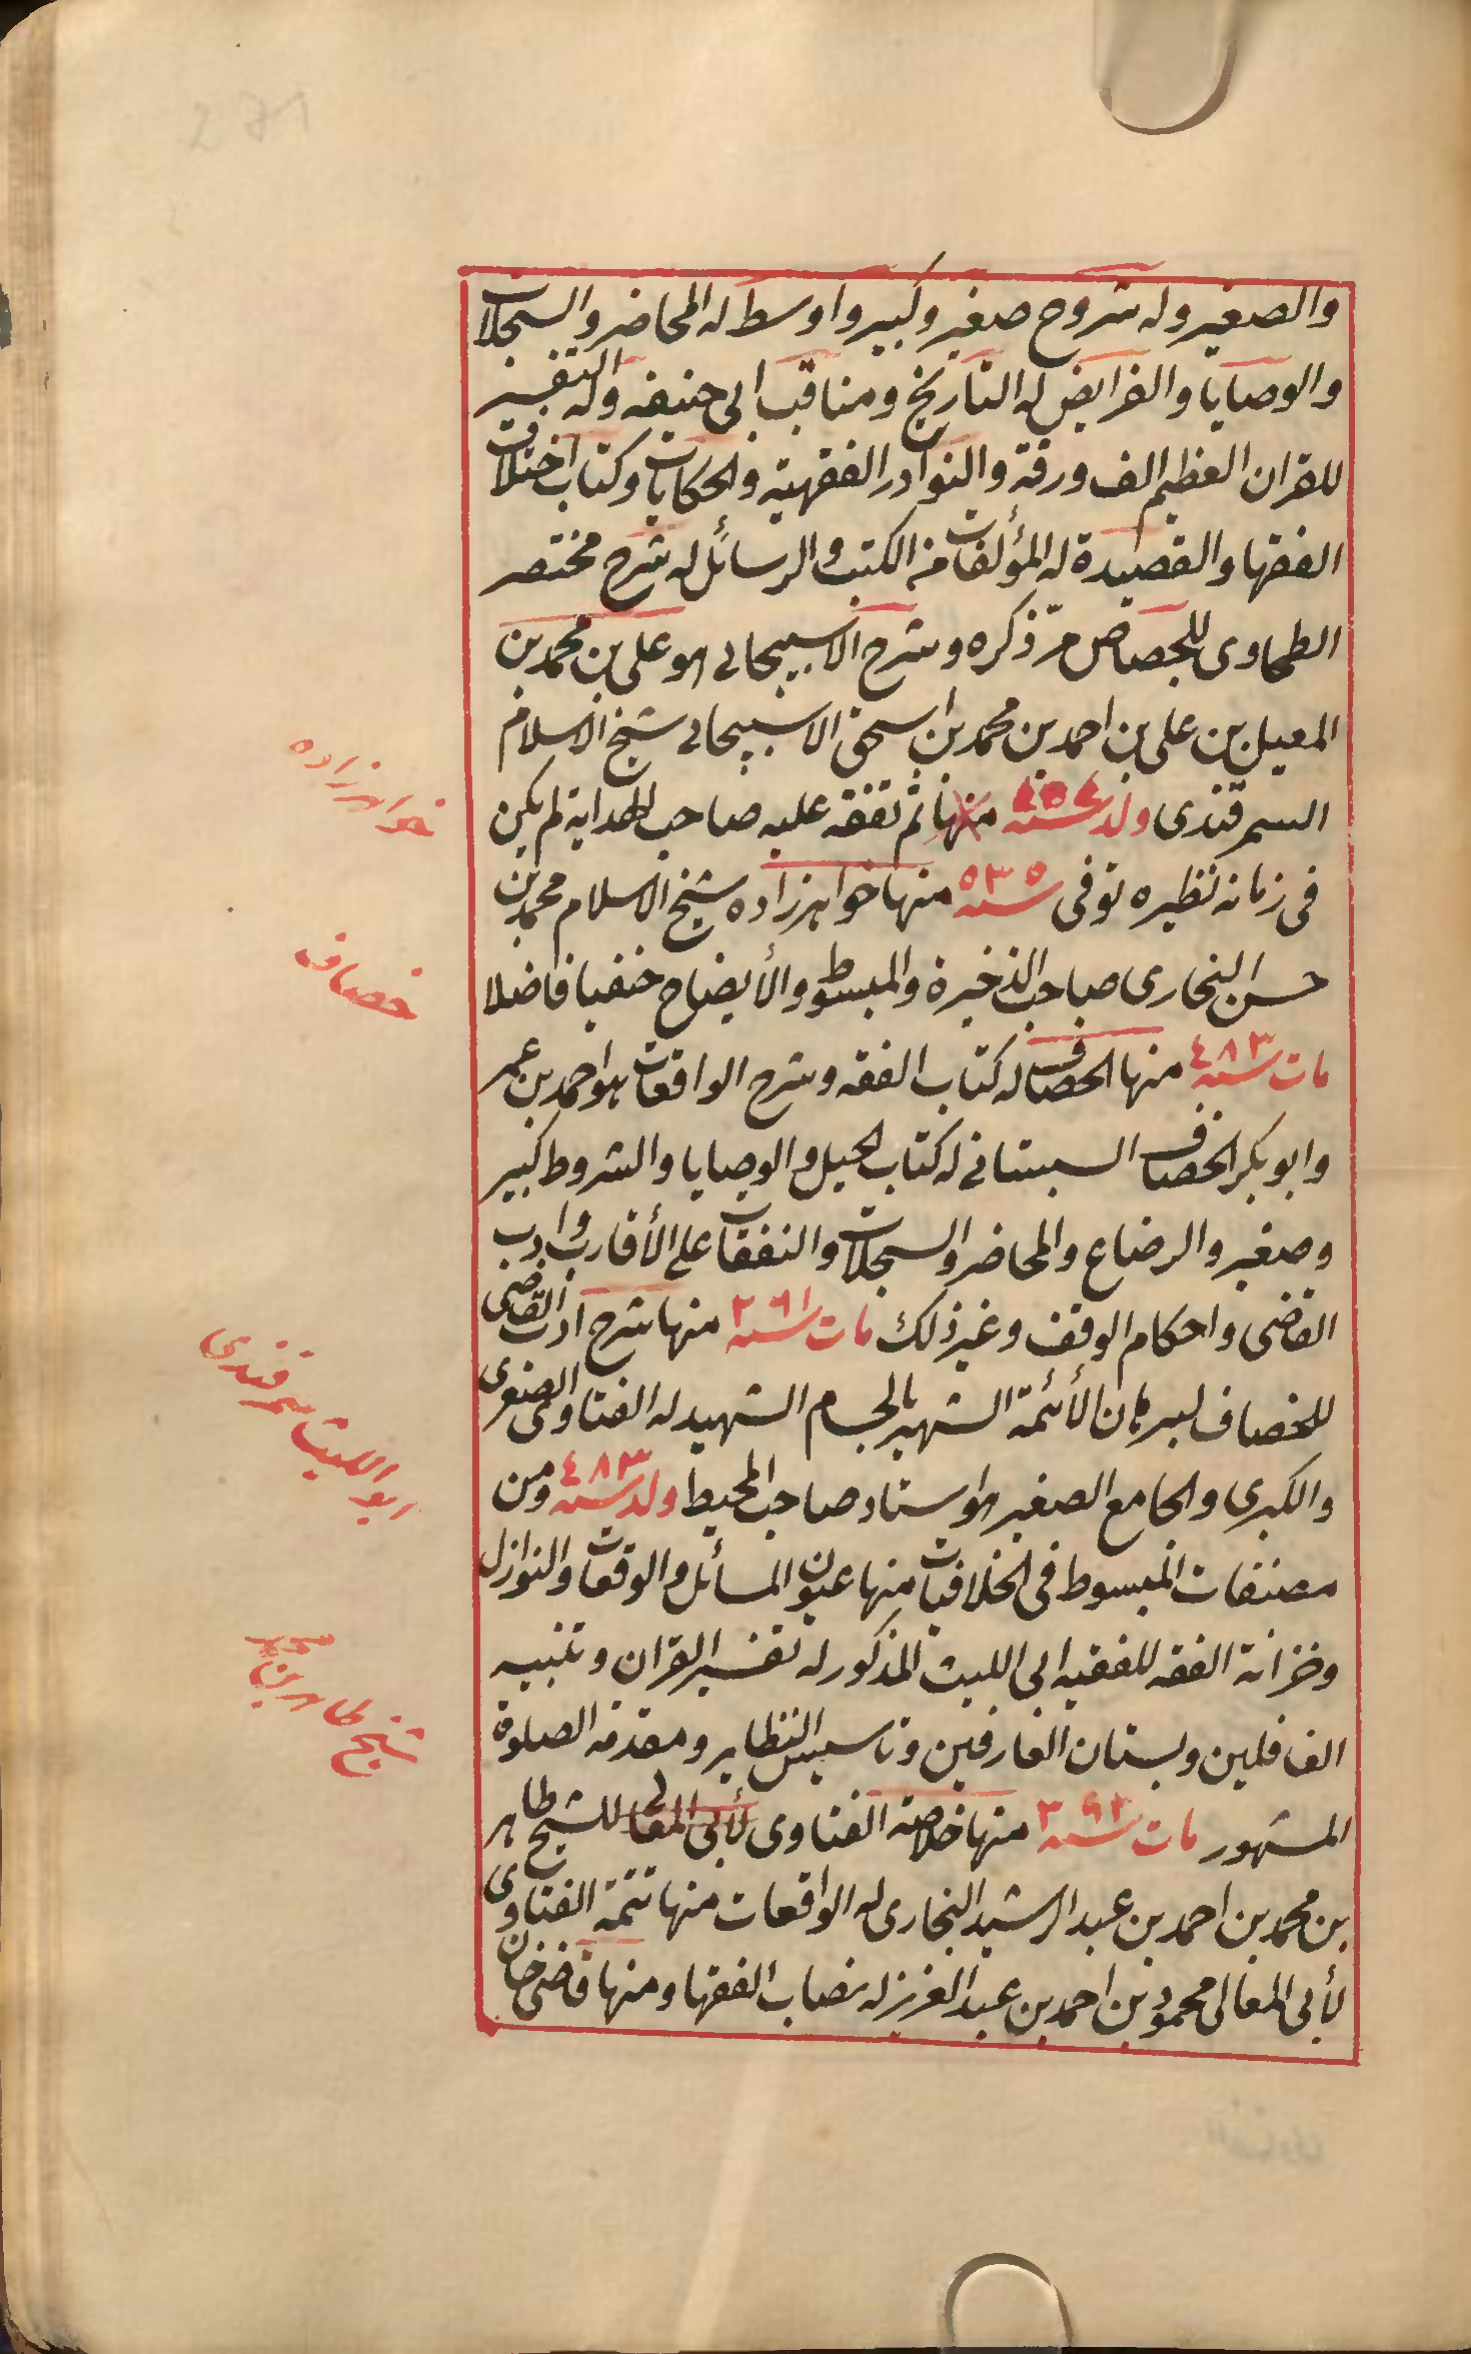 والصغير وله شروح صغير وكبير واوسط له المحاضر والسجلات
والوصايا والفرايض له التاريخ ومناقب ابى حنيفه وله التفسير
للقران العظيم الف ورقة والنوادر الفقهية والحكايات وكتاب اختلاف
الفقها والقصيدة له المؤلفات من الكتب والرسائل له شرح مختصر
الطحاوى للجصاص مرّ ذكره وشرح الاسبيجابى هو على بن محمد بن
اسمعيل بن على بن احمد بن محمد بن اسحق الاسبيجابى شيخ الاسلام
السمرقندى ولد سنه ٤٥٤ منها ثم تفقه عليه صاحب الهداية لم يكن
فى زمانه نظيره توفى سنه ٥٣٥ منها خواهرزاده شيخ الاسلام محمد بن
حسن البخارى صاحب الذخيرة والمبسوط والأيضاح حنفيا فاضلا
مات سنه ٤٨٣ منها الخصاف له كتاب الفقه وشرح الواقعات هو احمد بن عمر
وابو بكر الخصاف السبستانى له كتاب الحيل والوصايا والشروط كبير
وصغير والرضاع والمحاضر والسجلات والنفقات على الأقارب وادب
القاضى واحكام الوقف وغير ذلك مات سنه ٢٦١ منها شرح ادب القاضى
للخصاف لبرهان الأئمة الشهير بالحسام الشهيد له الفتاوى الصغرى
والكبرى والجامع الصغير هو استاد صاحب المحيط ولد سنه ٤٨٣ ومن
مصنفات المبسوط فى الخلافيات منها عيون المسائل والوقعات والنوازل
وخزانة الفقه للفقيه ابى الليث المذكور له تفسير القران وتنبيه
الغافلين وبستان العارفين وتاسيس النظاير ومقدمه الصلوة
المشهور مات سنه ٣٩٣ منها خلاصة الفتاوى لأبى المعالى للشيخ طاهر
بن محمد بن احمد بن عبد الرشيد البخارى له الواقعات منها تتمة الفتاوى
لأبى المعالى محمود بن احمد بن عبد العزيز له نصاب الفقها ومنها قاضى خان
خواهرزاده
خصاف
ابو الليث سمرقندى
شيخ طاهر بن محمد